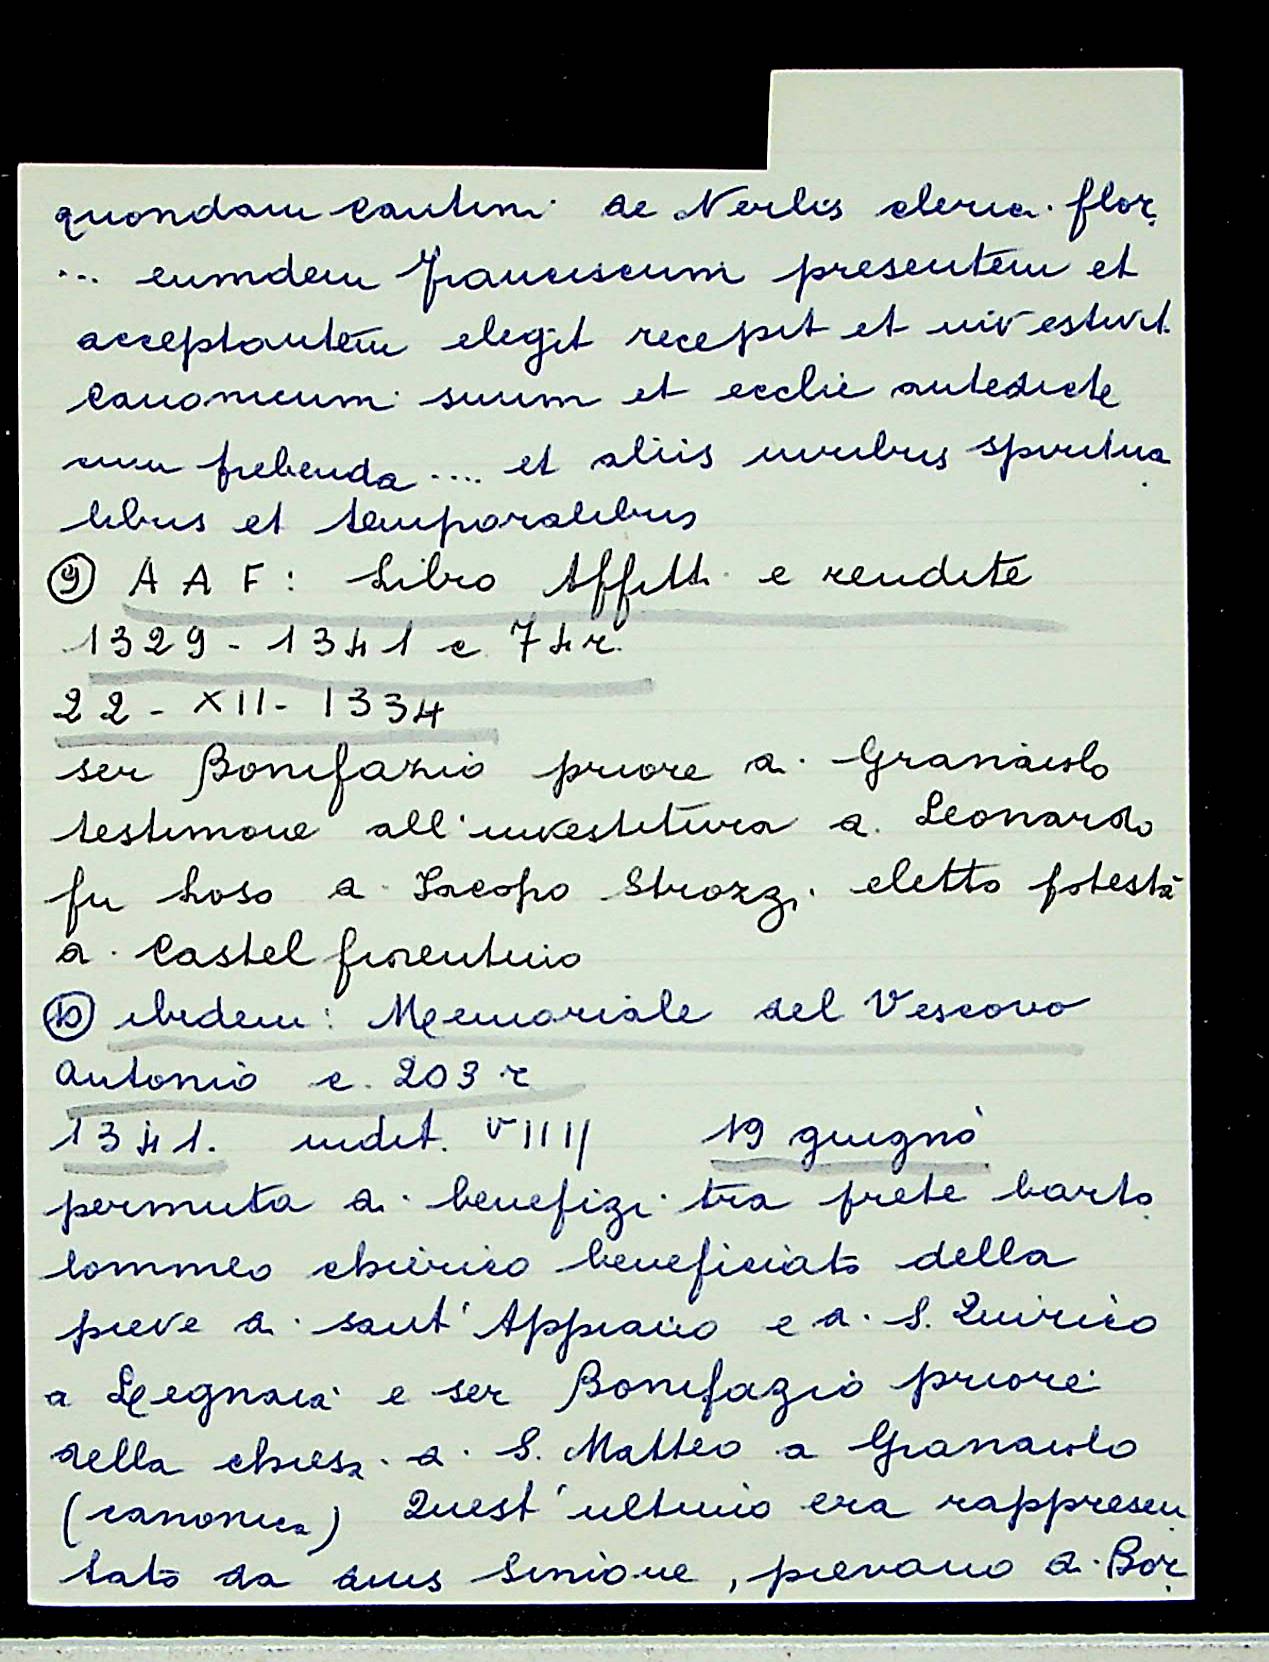 quondam Cantini de Nerlis cleric. flor.
... eumdem franciscum presentem et
acceptantem elegit recepit et investivit
canonicum suum et ecclie antedicte
cum prebenda .... et aliis iuribus spiritua
libus et temporalibus
⑨ A A F: Libro Affitti e rendite
1329 - 1341 c. 74r.
22 - XII - 1334
ser Bonifazio priore di Granaiolo
testimone all'investitura di Leonardo
fu Loso di Iacopo Strozzi eletto potestà
di Castel fiorentino
⑩ ibidem: Memoriale del Vescovo
Antonio c. 203 r
1341. indit. VIIII 19 giugno
permuta di benefizi tra prete barto
lommeo chierico beneficiato della
pieve di sant'Appiano e di S. Quirico
a Legnaia e ser Bonifazio priore
della chiesa di S. Matteo a Granaiolo
(canonica) Quest'ultimo era rappresen
tato da dns Simone, pievano di Bor